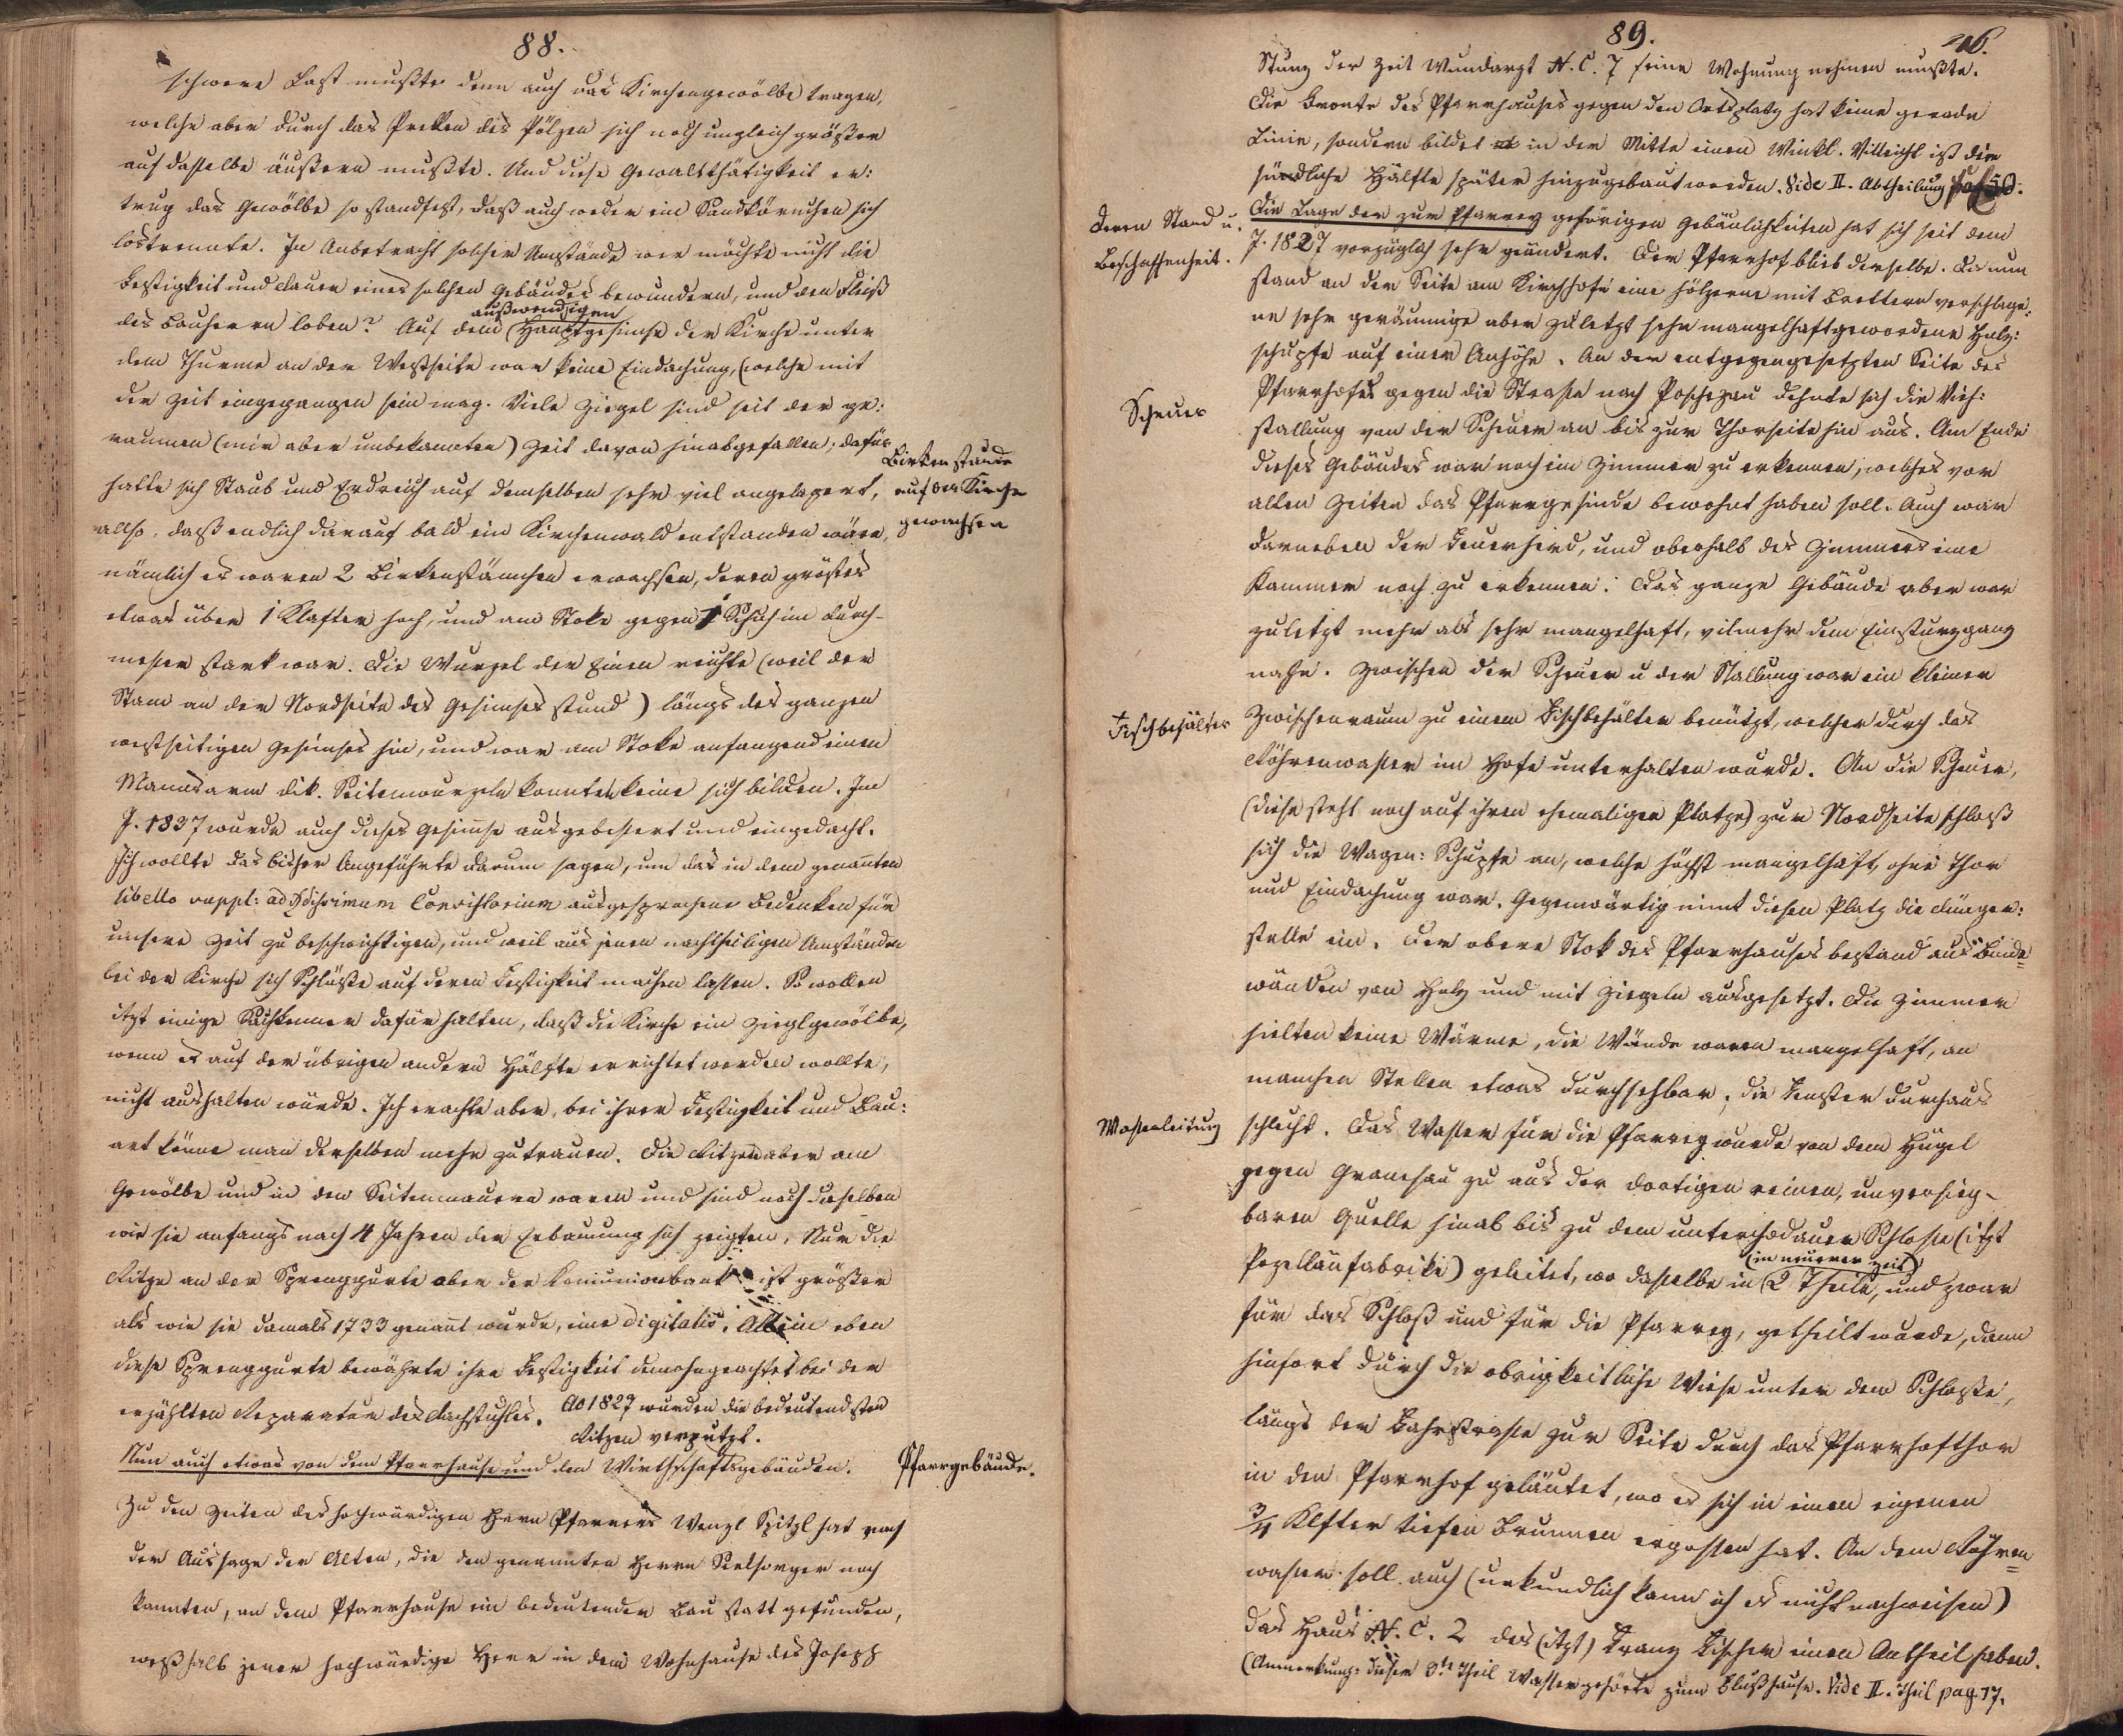 88.
schwere Last mußte denn auch das Kirchengewölbe tragen,
welche aber durch das Prellen des Pölzen sich noch ungleich größer
auf dasselbe äußern mußte. Und diese Gewaltthätigkeit er:
trug das Gewölbe so standfest, daß auch weder ein Sandkörnchen sich
lostrennte. In Anbetracht solcher Umstände wer möchte nicht die
Festigkeit und Dauer eines solchen Gebäudes bewundern, und den Fleiß
außwendigen
des Bauherrn loben? Auf dem Hauptgesimse der Kirche unter
dem Thurme an der Westseite war keine Eindachung, (welche mit
der Zeit eingegangen sein mag. Viele Ziegel sind seit der ge:
raumen (mir aber unbekannten) Zeit davon hinabgefallen; dafür
hatte sich Staub und Erdreich auf demselben sehr viel angelagert,
allso, daß endlich darauf bald ein Kirchenwald entstanden wäre,
Birkenstaude
auf der Kirche
gewachsen
nämlich es waren 2 Birkenstämchen erwachsen, deren größtes
etwas über 1 Klafter hoch, und am Stoke gegen 1 Schuh im Durch-
messer stark war. Die Wurzel der Einen reichte (weil der
Stam an der Nordseite des Gesimses stund) längs des ganzen
westseitigen Gesimses hin, und war am Stoke anfangend einen
Mannsarm dik. Seitenwurzeln konnten keine sich bilden. Im
J. 1837 wurde auch dieses Gesimse ausgebessert und eingedacht.
Ich wollte das bisher Angeführte darum sagen, um das in dem genannten
libello suppl: ad Consistorium ausgesprochene Bedenken für
unsere Zeit zu beschwichtigen, und weil aus jenen nachtheiligen Umständen
bei der Kirche sich Schlüße auf deren Festigkeit machen lassen. So wollen
itzt einige Sachkenner dafür halten, daß die Kirche ein Zieglgewölbe,
wenn es auf der übrigen andern Hälfte errichtet werden wollte,
nicht aushalten würde. Ich erachte aber, bei ihrer Festigkeit und Bau:
art könne man derselben mehr zutrauen. Die Ritzen aber am
Gewölbe und in den Seitenmauern waren und sind noch dieselben
wie sie anfangs nach 4 Jahren der Erbauung sich zeigten. Nur die
Ritze an der Sprenggurte ober der Komunionbank ist größer
als wie sie damals 1733 genant wurde, eine digitalis. Allein eben
diese Sprenggurte bewährte ihre Festigkeit demohngeachtet bei der
erzählten Reparatur des Dachstuhles. Ao 1827 wurden die bedeutendsten
Ritzen verputzt.
Nun auch etwas von dem Pfarrhause und den Wirthschaftsgebäuden.
Pfarrgebäude.
Zu den Zeiten des hochwürdigen Herrn Pfarrers Wenzl Spitzl hat nach
der Aussage der Alten, die den genannten Herrn Seelsorger noch
kannten, an dem Pfarrhause ein bedeutender Bau statt gefunden,
weßhalb jener hochwürdige Herr in dem Wohnhause des Joseph
89.
Stunz der Zeit Wundarzt N. C. 7 seine Wohnung nehmen mußte.
Die Fronte des Pfarrhauses gegen den Ortsplatz hat keine gerade
Linie, sondern bildet in der Mitte einen Winkl. Villeicht ist die
südliche Hälfte später hinzugebaut worden. Vide II. Abtheilung pag 50.
Deren Stand u.
Beschaffenheit.
Die Lage der zur Pfarrey gehörigen Gebäulichkeiten hat sich seit dem
J. 1827 vorzüglich sehr geändert. Der Pfarrhof blieb derselbe. Da nun
stand an der Seite am Kirchhofe eine hölzerne mit Brettern verschlage:
ne sehr geräumige aber zuletzt sehr mangelhaft gewordene Holz:
schupfe auf einer Anhöhe. An der entgegengesetzten Seite des
Pfarrhofes gegen die Strasse nach Poschezau dehnte sich die Vieh:
Scheuer
stallung von der Scheuer an bis zur Thorseite hin aus. Am Ende
dieses Gebäudes war noch ein Zimmer zu erkennen, welches vor
alten Zeiten das Pfarrgesinde bewohnt haben soll. Auch war
darneben der Feuerherd, und oberhalb des Zimmers eine
Kammer noch zu erkennen. Das ganze Gebäude aber war
zuletzt mehr als sehr mangelhaft, vilmehr dem Einsturzgang
nahe. Zwischen der Scheuer u der Stallung war ein kleiner
Fischbehälter
Zwischenraum zu einem Fischbehälter benützt, welcher durch das
Röhrenwasser im Hofe unterhalten wurde. An die Scheuer,
(diese steht noch auf ihren ehemaligen Platze) zur Nordseite schloß
sich die Wagen: Schupfe an, welche höchst mangelhaft, ohne Thor
und Eindachung war. Gegenwärtig nimt diesen Platz die Dünger:
stelle ein. Der obere Stok des Pfarrhauses bestand aus Binde=
wänden von Holz und mit Ziegeln ausgesetzt. Die Zimmer
hielten keine Wärme, die Wände waren mangelhaft, an
manchen Stellen etwas durchsehbar; die Fenster durchaus
Wasserleitung
schlecht. Das Wasser für die Pfarrey wurde von dem Hügel
gegen Granesau zu aus der dortigen reinen, unversieg-
baren Quelle hinab bis zu dem unterchodauer Schlosse (itzt
(in neuerer Zeit)
Pozellänfabrike) geleitet, wo dasselbe in 2 Theile, und zwar
für das Schloß und für die Pfarrey, getheilt wurde, dann
hinfort durch die obrigkeitliche Wiese unter dem Schloße,
längs der Fahrstrasse zur Seite durch das Pfarrhofthor
in den Pfarrhof geläutet, wo es sich in einen eigenen
3/4 Klfter tiefen Brunnen ergossen hat. An dem Röhren=
wasser soll auch (urkundlich kann ich es nicht nachweisen)
das Haus N. C. 2 des (itzt) Franz Fischer einen Antheil haben.
(Anmerkung: dieser 3te Theil Wasser gehörte zum Flußhause. Vide II. Theil pag. 17.